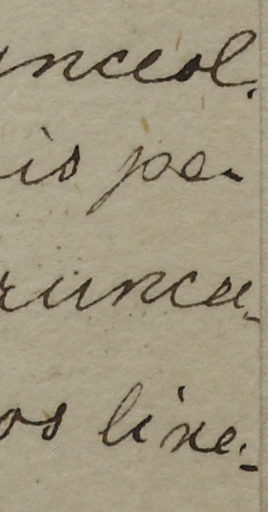 anceol.
is pe-
runca-
os line-